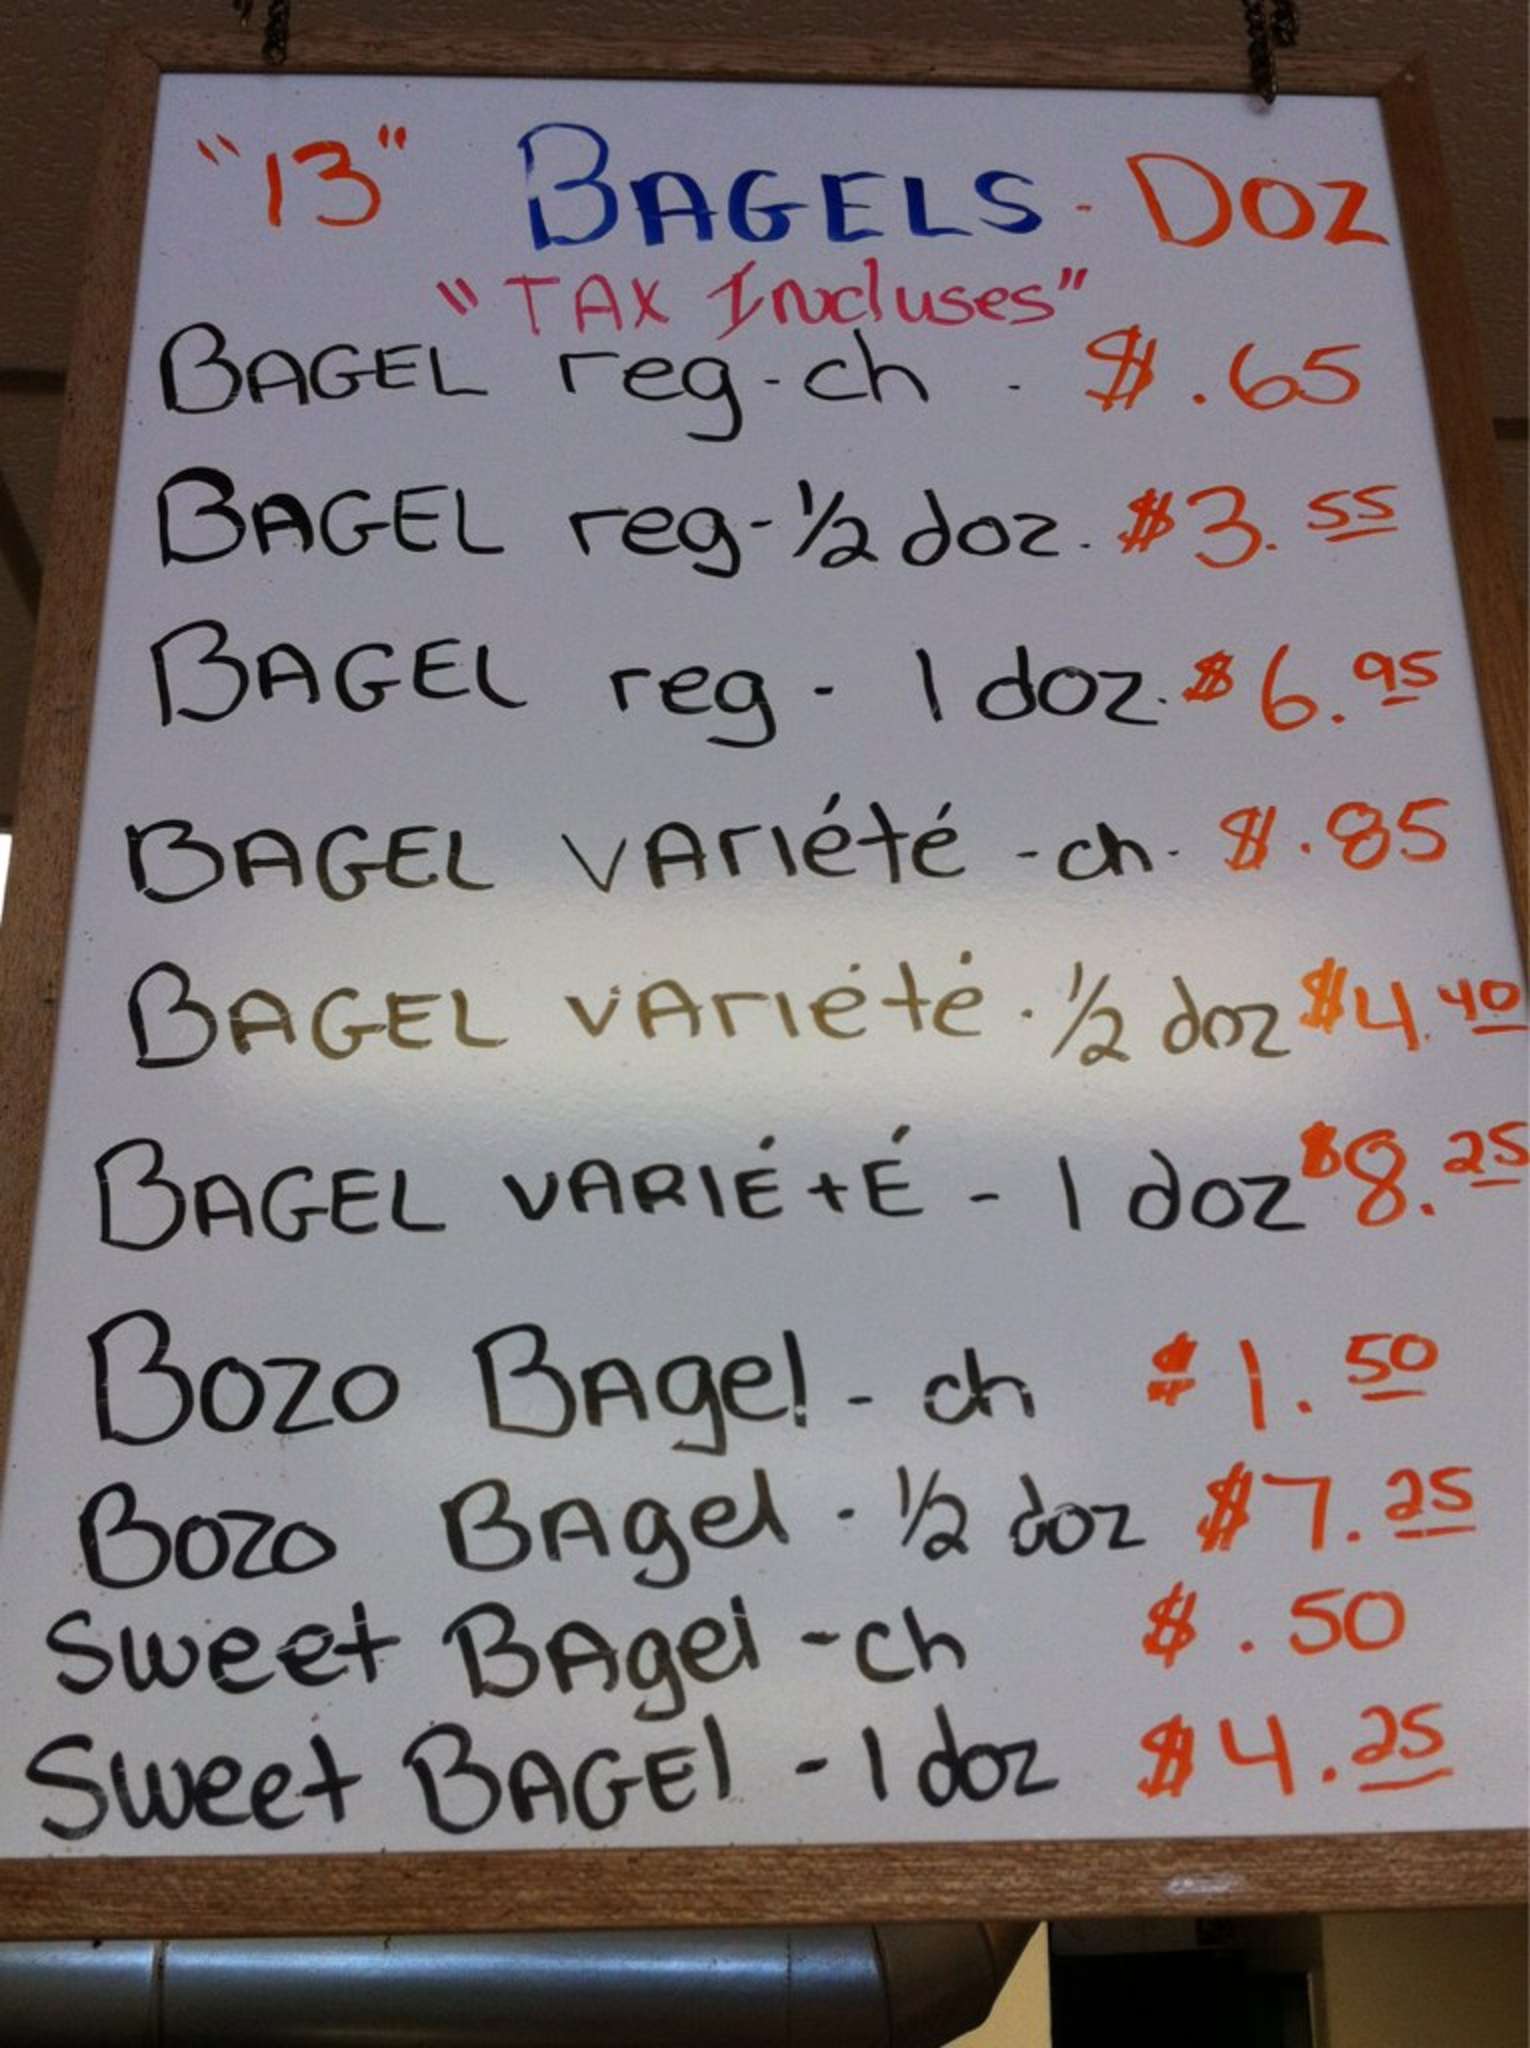 "13" BAGELS - DOZ
"TAX Incluses"
BAGEL reg - ch - $ .65
BAGEL reg - 1/2 doz. $3.55
BAGEL reg - 1 doz. $6.95
BAGEL VAriété - ch - $ .85
BAGEL VAriété - 1/2 doz $4.40
BAGEL VARIÉtÉ - 1 doz $8.25
BOZO BAgel - ch $1.50
BOZO BAgel - 1/2 doz $7.25
Sweet BAgel - ch $ .50
Sweet BAGEl - 1 doz $4.25